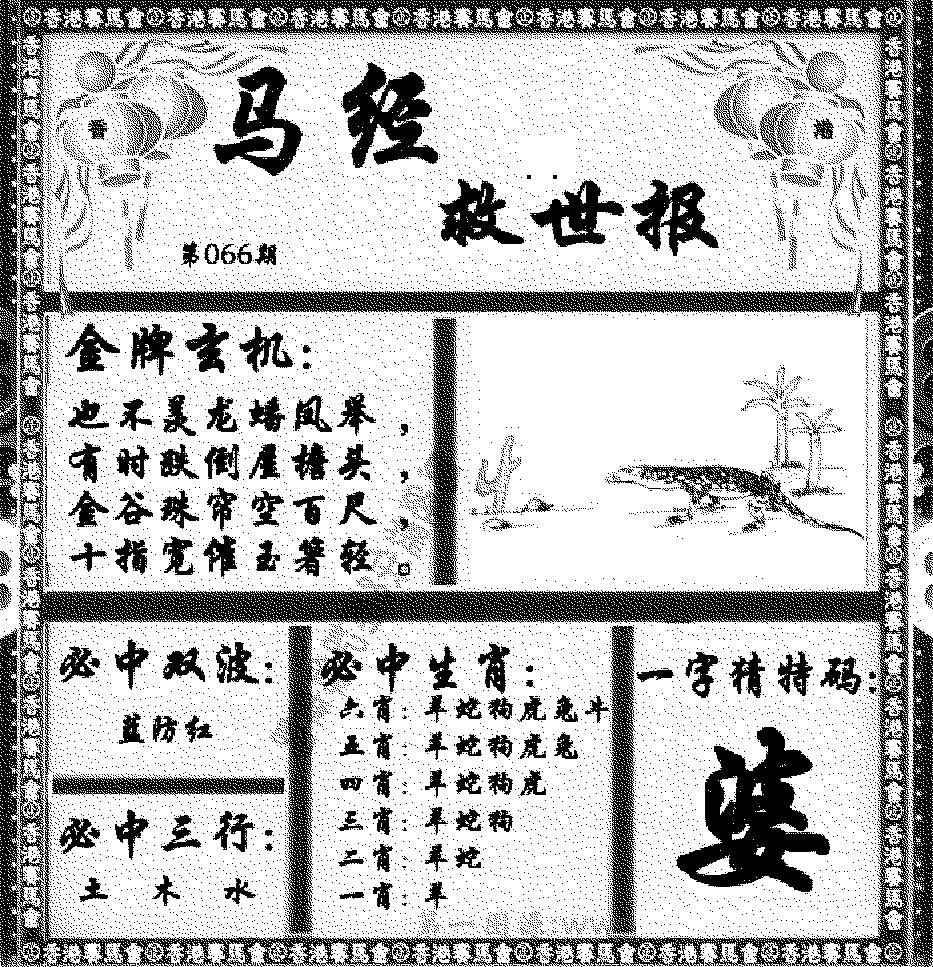 香港賽馬會 香港賽馬會 香港賽馬會 香港賽馬會 香港賽馬會 香港賽馬會 香港賽馬會
香 港
马经
救世报
第066期
金牌玄机：
也不羡龙蟠凤举，
有时跌倒屋檐头，
金谷珠帘空百尺，
十指宽催玉箸轻。
必中双波：
蓝防红
必中三行：
土 木 水
必中生肖：
六肖：羊蛇狗虎兔牛
五肖：羊蛇狗虎兔
四肖：羊蛇狗虎
三肖：羊蛇狗
二肖：羊蛇
一肖：羊
一字猜特码：
婆
香港賽馬會 香港賽馬會 香港賽馬會 香港賽馬會 香港賽馬會 香港賽馬會 香港賽馬會